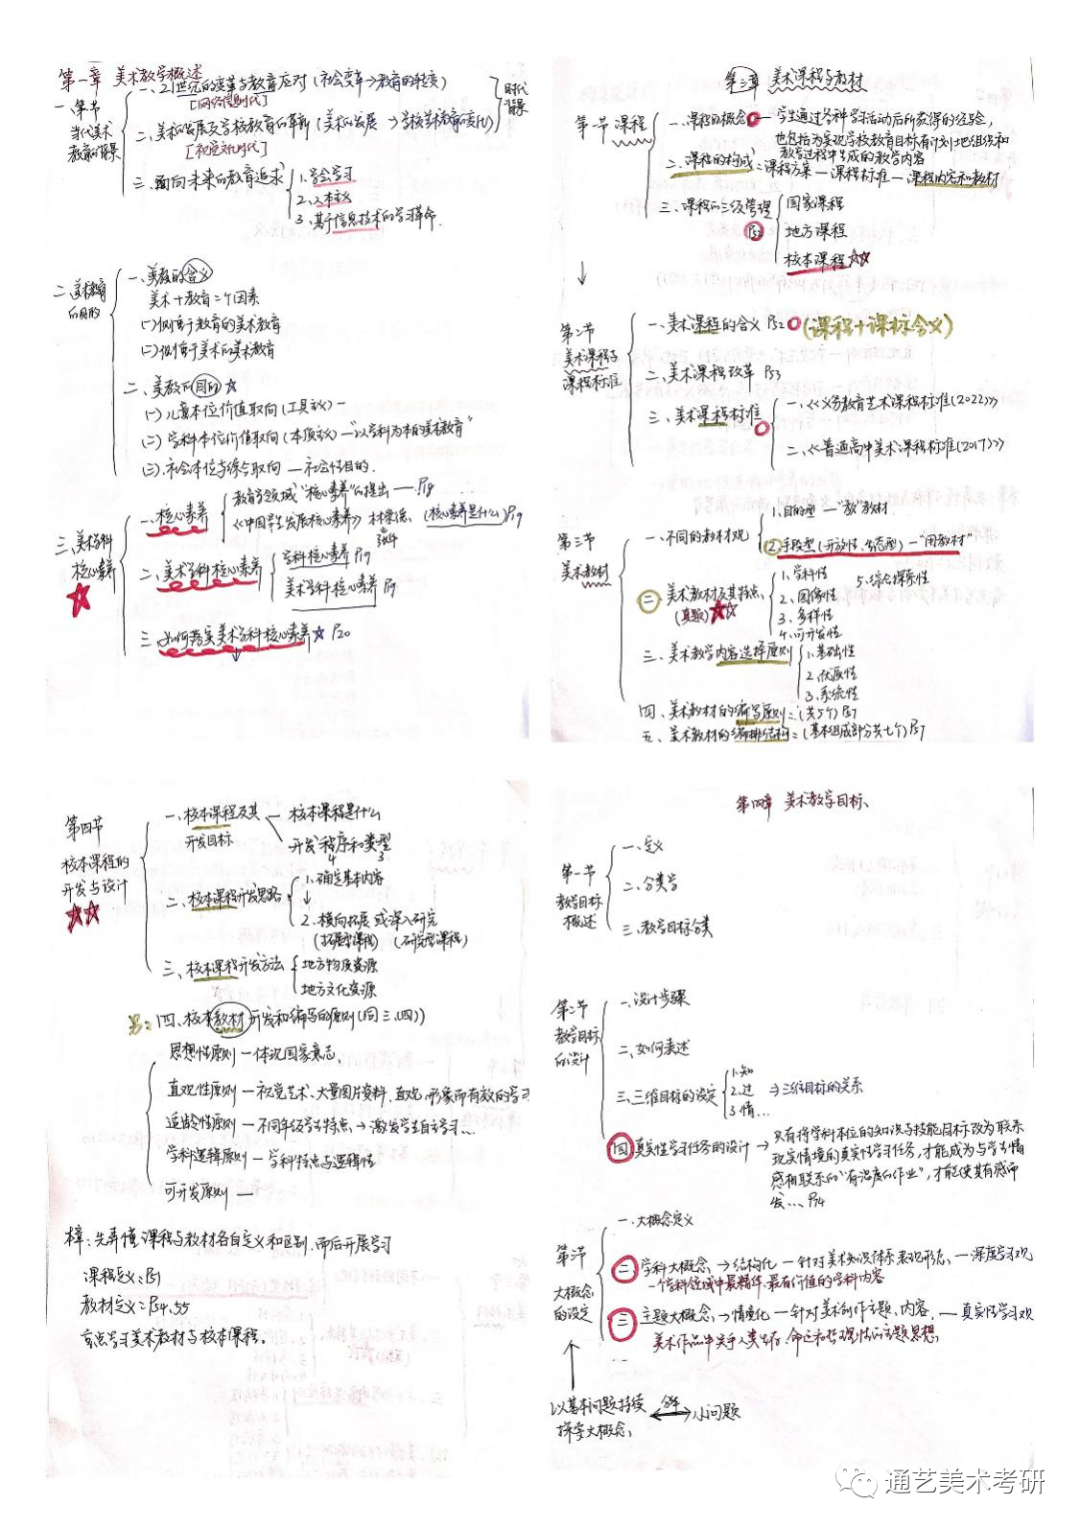 第一章 美术教学概述
第一节
当代美术
教育的背景
一、21世纪的变革与教育应对(社会变革→教育的转变)
[网络信息时代]
二、美术的发展及学校教育的革新(美术的发展→学校美术教育的变化)
[视觉文化时代]
时代
背景
三、面向未来的教育追求
1.学会学习
2.人本主义
3.基于信息技术的学习革命
二、美术教育
的目的
一、美教的含义
美术+教育=个因素
(一)侧重于教育的美术教育
(二)侧重于美术的美术教育
二、美教的目的
(一)儿童本位价值取向(工具论)一
(二)学科本位价值取向(本质论)—"以学科为本的美术教育"
(三)社会本位与综合取向—社会性目的.
三、美术学科
核心素养
一、核心素养
教育学领域"核心素养"的提出——P18
《中国学生发展核心素养》林崇德、(核心素养是什么)P19
二、美术学科核心素养
学科核心素养P19
美术学科核心素养P19
三、如何落实美术学科核心素养 P20
第三章 美术课程与教材
第一节 课程
一、课程的概念—学生通过各种学习活动后所获得的经验,
也包括为实现学校教育目标有计划地组织和
教学过程中生成的教学内容
二、课程的构成:课程方案—课程标准—课程内容和教材
三、课程的三级管理
P52
国家课程
地方课程
校本课程
第二节
美术课程与
课程标准
一、美术课程的含义 P52 (课程+课标含义)
二、美术课程改革 P53
三、美术课程标准
一、《义务教育艺术课程标准(2022)》
二、《普通高中美术课程标准(2017)》
第三节
美术教材
一、不同的教材观
1.目的型—"教"教材
2.手段型(开放性、示范型)—"用教材"
二 美术教材及其特点、
(真题)
1.学科性
2.图像性
3.多样性
4.可开发性
5.综合探索性
三、美术教学内容选择原则
1.基础性
2.代表性
3.系统性
四、美术教材的编写原则:(共5个)P57
五、美术教材的编排结构:(基本组成部分共七个)P57
第四节
校本课程的
开发与设计
一、校本课程及其
开发目标
校本课程是什么
开发程序和类型
4 3
二、校本课程开发思路
1.确定基本内容
↓
2.横向拓展或深入研究
(拓展型课程) (研究型课程)
三、校本课程开发方法
地方物质资源
地方文化资源
另:(四、校本教材开发和编写的原则(同三、(四))
思想性原则—体现国家意志,
直观性原则—视觉艺术、大量图片资料,直观形象而有效的学习
适龄性原则—不同年级学生特点→激发学生自主学习...
学科逻辑原则—学科特点与逻辑性
可开发原则—
梓:先弄懂课程与教材各自定义和区别,而后开展学习
课程定义:P51
教材定义:P54,55
重点学习美术教材与校本课程.
第四章 美术教学目标、
第一节
教学目标
概述
一、定义
二、分类学
三、教学目标分类
第二节
教学目标
的设计
一、设计步骤
二、如何表述
三、三维目标的设定
1.知
2.过
3.情...
⇒三维目标的关系
四 真实性学习任务的设计→只有将学科本位的知识与技能目标改为联系
现实情境的真实性学习任务,才能成为与学生情
感相联系的"有温度的作业",才能使其有感而
发...P74
第三节
大概念
的设定
一、大概念定义
二、学科大概念,→结构化—针对美术知识体系表现形态,—深度学习观
一个学科领域中最精华、最有价值的学科内容
三、主题大概念,→情境化—针对美术创作主题、内容,—真实性学习观
美术作品中关乎人类生存、命运和哲理性的主题思想,
以基本问题持续
探索大概念,
分解
小问题
通艺美术考研